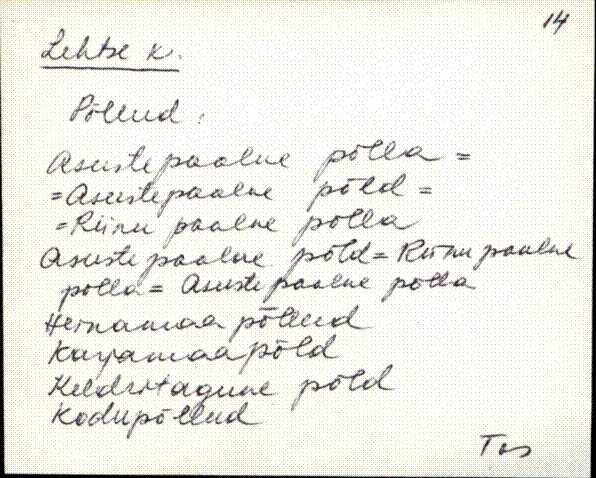 14
Lehtse k.
Põllud:
Asustepoolne põlla =
= Asustepoolne põld =
= Riinu poolne põlla
Asustepoolne põld = Riinu poolne
põlla = Asustepoolne põlla
Heinamaa põllud
Karjamaa põld
Keldritagune põld
Kodupõllud